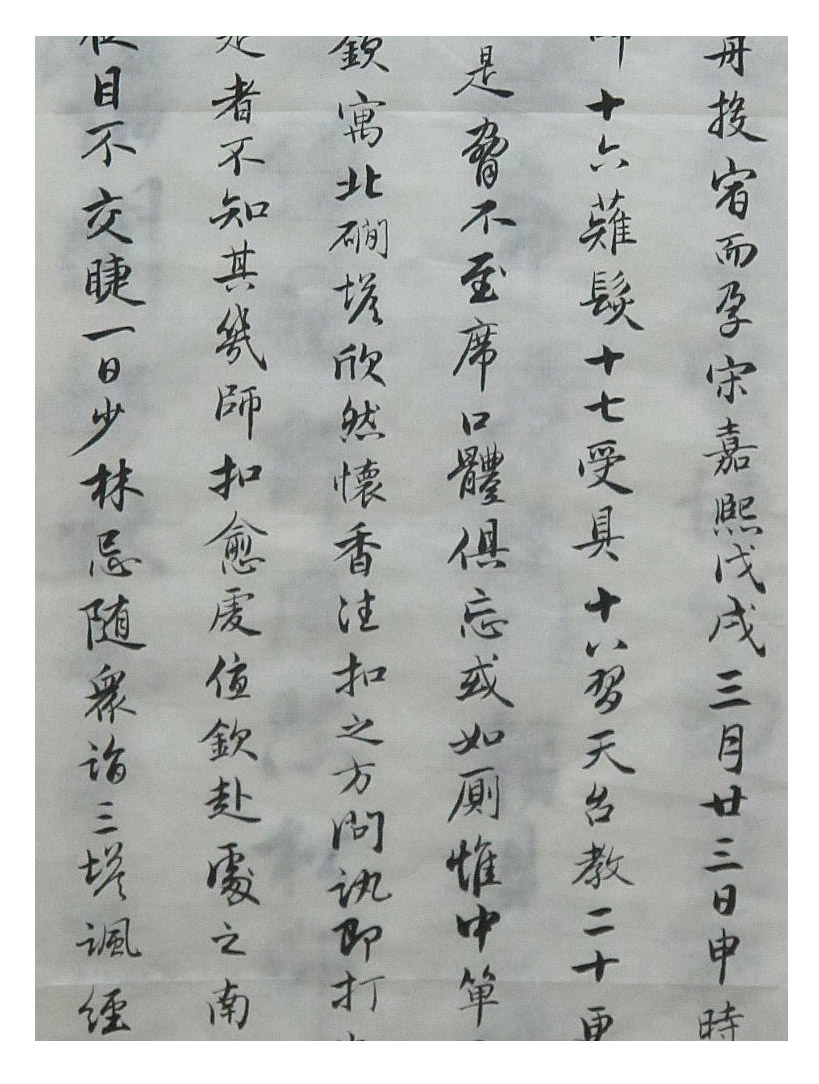 舟投宿而孕宋嘉熙戊戌三月廿三日申時
師十六薙髮十七受具十八習天台教二十更
是脅不至席口體俱忘或如厠惟中單
欽寓北磵塔欣然懷香往扣之方問訊即打
是者不知其幾師扣愈虔值欽赴處之南
夜目不交睫一日少林忌隨衆詣三塔諷經